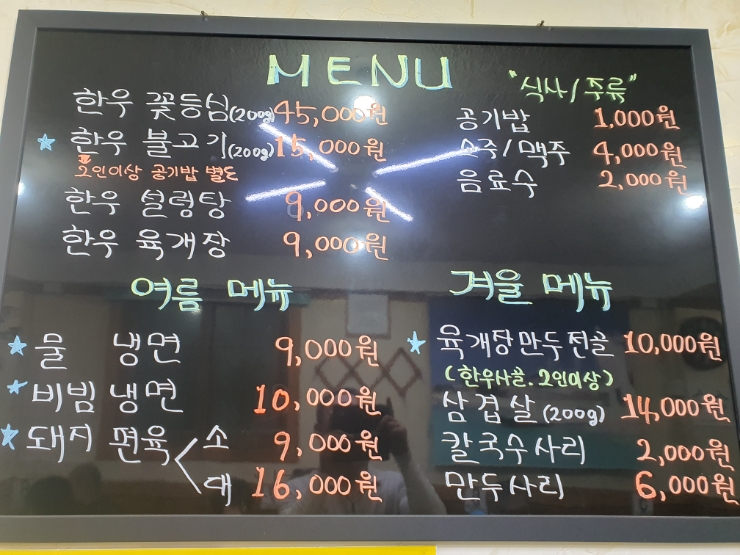 MENU
한우 꽃등심(200g) 45,000원
★ 한우 불고기(200g) 15,000원
2인이상 공기밥 별도
한우 설렁탕 9,000원
한우 육개장 9,000원
"식사/주류"
공기밥 1,000원
소주/맥주 4,000원
음료수 2,000원
여름 메뉴
★ 물 냉면 9,000원
★ 비빔냉면 10,000원
★ 돼지 편육 소 9,000원
대 16,000원
겨울 메뉴
★ 육개장만두전골 10,000원
(한우사골.2인이상)
삼겹살(200g) 14,000원
칼국수사리 2,000원
만두사리 6,000원